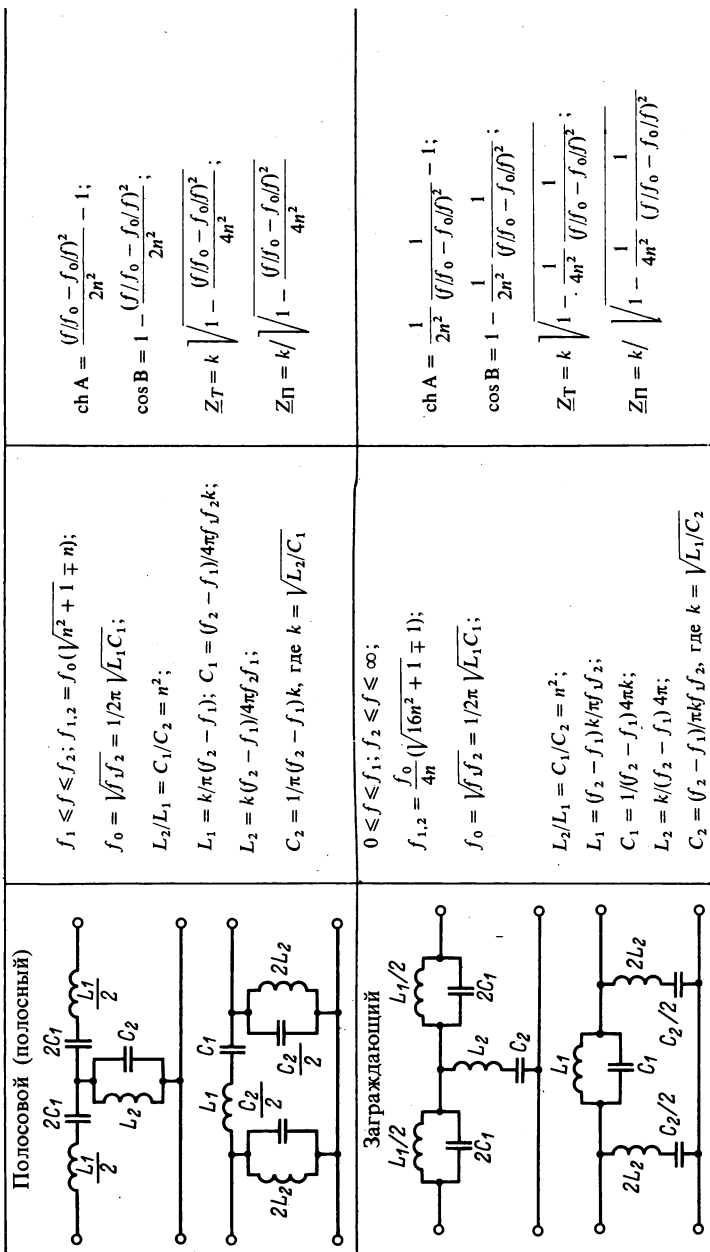 Полосовой (полосный)
L1/2 2C1 2C1 L1/2
L2 C2
L1 C1
2L2 C2/2 C2/2 2L2
f₁ ≤ f ≤ f₂; f₁,₂ = f₀(√(n² + 1) ∓ n);
f₀ = √(f₁f₂) = 1/2π √(L₁C₁);
L₂/L₁ = C₁/C₂ = n²;
L₁ = k/π(f₂ − f₁); C₁ = (f₂ − f₁)/4πf₁f₂k;
L₂ = k(f₂ − f₁)/4πf₂f₁;
C₂ = 1/π(f₂ − f₁)k, где k = √(L₂/C₁)
ch A = (f/f₀ − f₀/f)²/2n² − 1;
cos B = 1 − (f/f₀ − f₀/f)²/2n²;
Z_T = k √(1 − (f/f₀ − f₀/f)²/4n²);
Z_П = k/√(1 − (f/f₀ − f₀/f)²/4n²)
Заграждающий
L1/2 L1/2
2C1 2C1
L2 C2
L1 C1
2L2 C2/2 2L2 C2/2
0 ≤ f ≤ f₁; f₂ ≤ f ≤ ∞;
f₁,₂ = f₀/4n (√(16n² + 1) ∓ 1);
f₀ = √(f₁f₂) = 1/2π √(L₁C₁);
L₂/L₁ = C₁/C₂ = n²;
L₁ = (f₂ − f₁)k/πf₁f₂;
C₁ = 1/(f₂ − f₁) 4πk;
L₂ = k/(f₂ − f₁) 4π;
C₂ = (f₂ − f₁)/πkf₁f₂, где k = √(L₁/C₂)
ch A = 1/2n² 1/(f/f₀ − f₀/f)² − 1;
cos B = 1 − 1/2n² 1/(f/f₀ − f₀/f)²;
Z_T = k √(1 − 1/4n² 1/(f/f₀ − f₀/f)²);
Z_П = k/√(1 − 1/4n² 1/(f/f₀ − f₀/f)²)